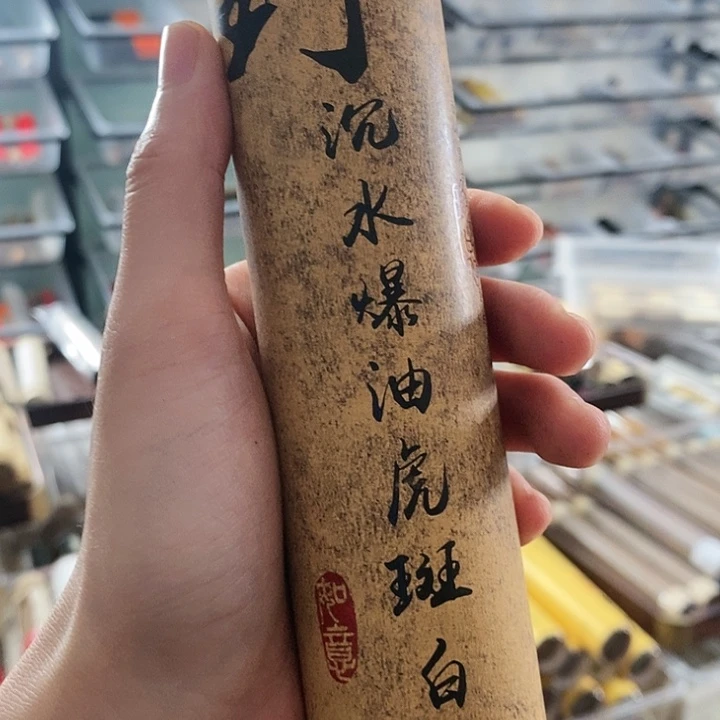 沉水爆油虎斑白
如意